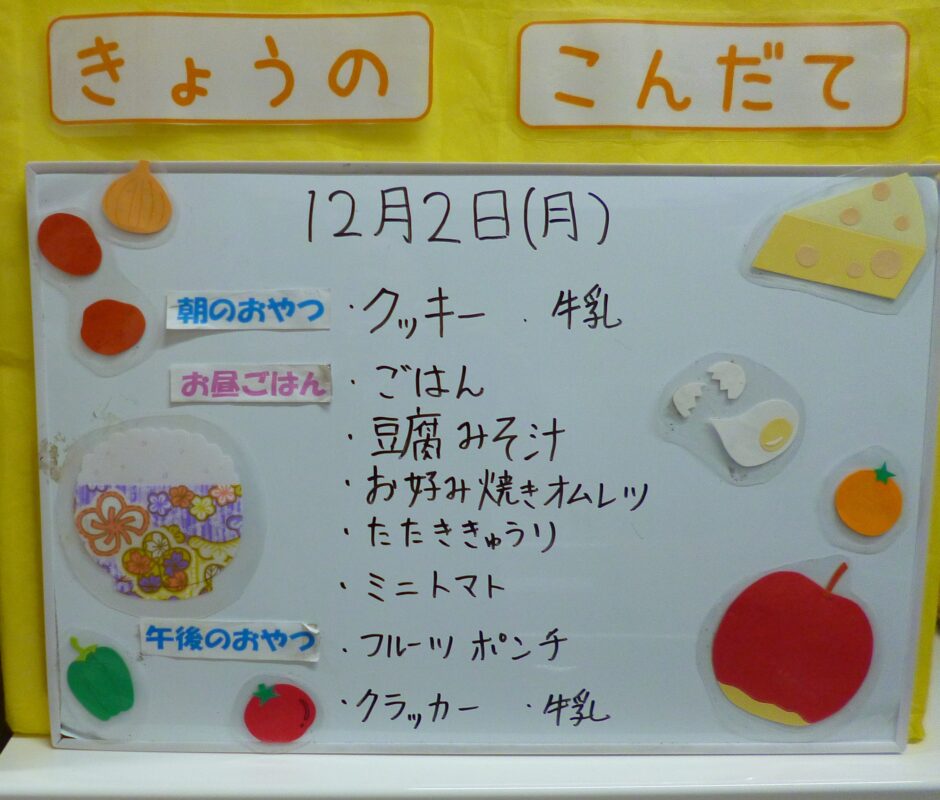 きょうの こんだて
12月2日(月)
朝のおやつ ・クッキー ・牛乳
お昼ごはん ・ごはん
・豆腐みそ汁
・お好み焼きオムレツ
・たたききゅうり
・ミニトマト
午後のおやつ ・フルーツポンチ
・クラッカー ・牛乳